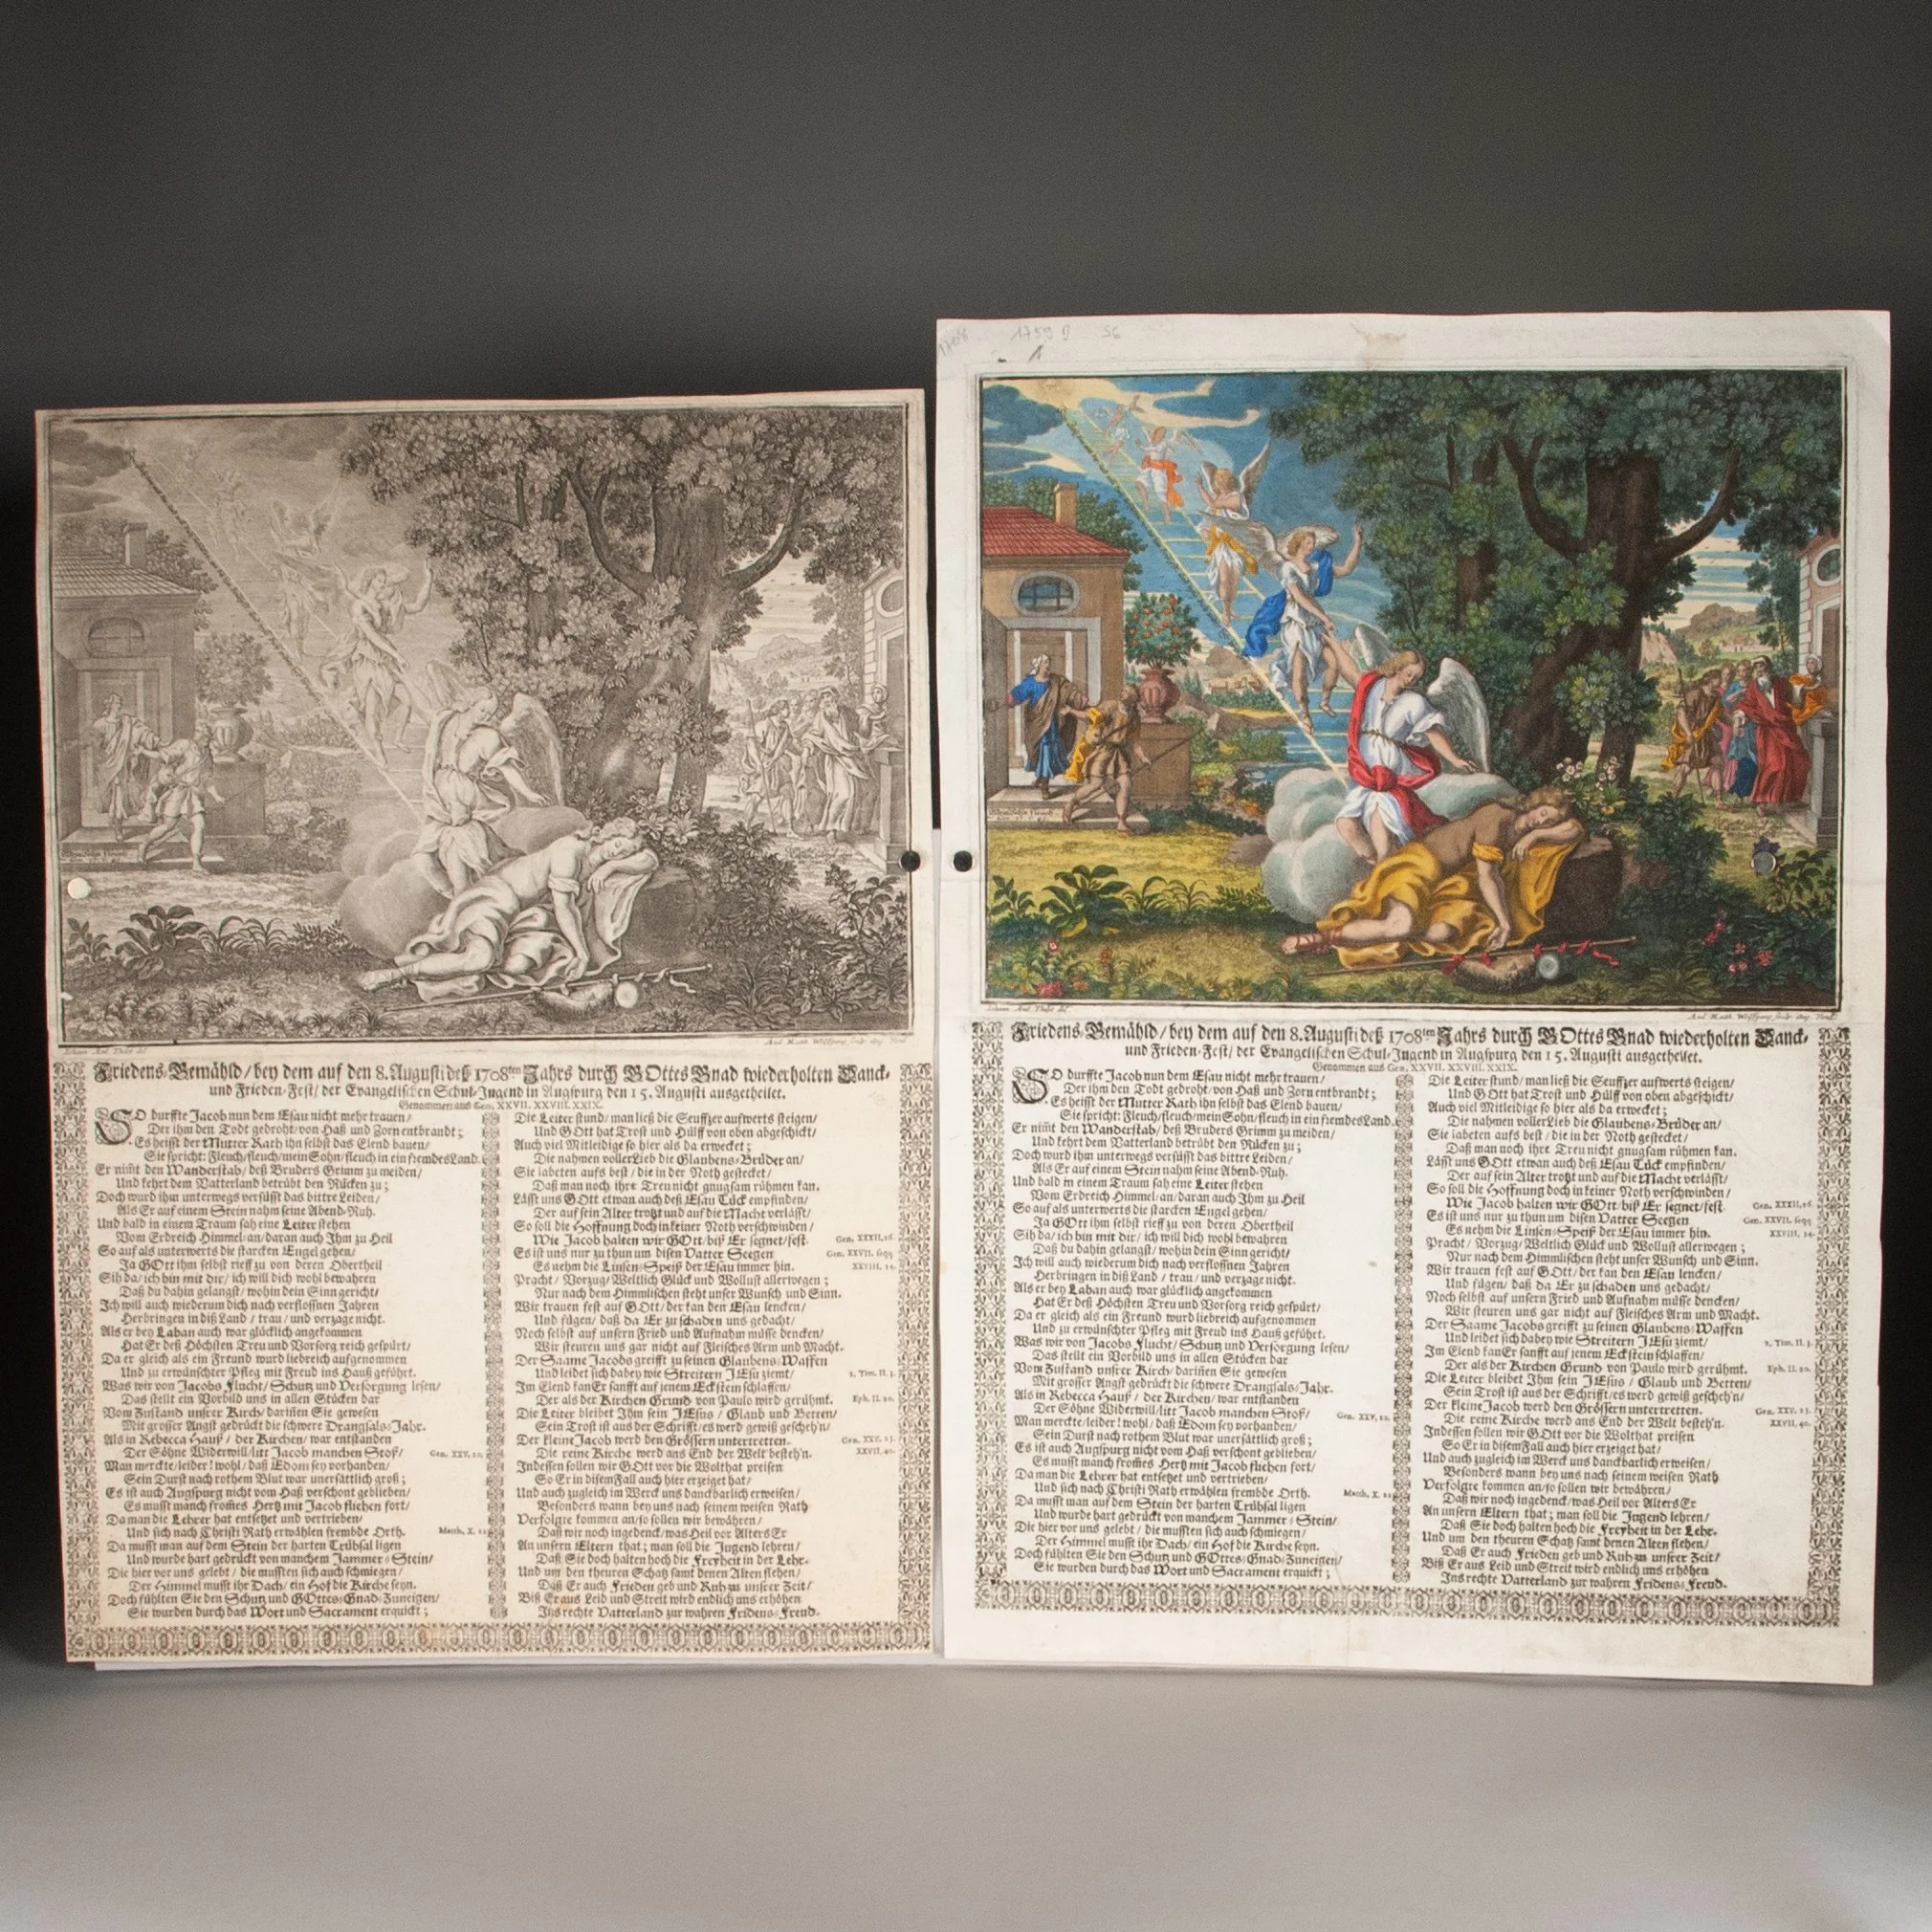 Johann And. Thelot del.
And. Matth. Wolffgang sculp. Aug. Vind.
Friedens-Gemähld/ bey dem auf den 8. Augusti deß 1708ten Jahrs durch GOttes Gnad wiederholten Danck-
und Frieden-Fest/ der Evangelischen Schul-Jugend in Augspurg den 15. Augusti ausgetheilet.
Genommen aus Gen. XXVII. XXVIII. XXIX.
SO durffte Jacob nun dem Esau nicht mehr trauen/
Der ihm den Todt gedroht/ von Haß und Zorn entbrandt;
Es heisst der Mutter Rath ihn selbst das Elend bauen/
Sie spricht: Fleuch/ fleuch/ mein Sohn/ fleuch in ein frembdes Land.
Er nim̃t den Wanderstab/ deß Bruders Grimm zu meiden/
Und kehrt dem Vatterland betrübt den Rücken zu;
Doch wurd ihm unterwegs versüsst das bittre Leiden/
Als Er auf einem Stein nahm seine Abend-Ruh.
Und bald in einem Traum sah eine Leiter stehen
Vom Erdreich Himmel-an/ daran auch Ihm zu Heil
So auf als unterwerts die starcken Engel gehen/
Ja GOtt ihm selbst rieff zu von deren Obertheil
Sih da/ ich bin mit dir/ ich will dich wohl bewahren
Daß du dahin gelangst/ wohin dein Sinn gericht/
Ich will auch wiederum dich nach verfloßnen Jahren
Herbringen in diß Land/ trau/ und verzage nicht.
Als er bey Laban auch war glücklich angekommen
Hat Er deß Höchsten Treu und Vorsorg reich gespürt/
Da er gleich als ein Freund wurd liebreich aufgenommen
Und zu erwünschter Pfleg mit Freud ins Hauß geführt.
Was wir von Jacobs Flucht/ Schutz und Versorgung lesen/
Das stellt ein Vorbild uns in allen Stücken dar
Vom Zustand unsrer Kirch/ dariñen Sie gewesen
Mit grosser Angst gedrückt die schwere Drangsals-Jahr.
Als in Rebecca Hauß/ der Kirchen/ war entstanden
Der Söhne Widerwill/ litt Jacob manchen Stoß/ Gen. XXV, 22.
Man merckte/ leider! wohl/ daß Edom sey vorhanden/
Sein Durst nach rothem Blut war unersättlich groß;
Es ist auch Augspurg nicht vom Haß verschont geblieben/
Es musst manch from̃es Hertz mit Jacob fliehen fort/
Da man die Lehrer hat entsetzt und vertrieben/
Und sich nach Christi Rath erwählen frembde Orth. Matth. X. 23.
Da musst man auf dem Stein der harten Trübsal ligen
Und wurde hart gedrückt von manchem Jammer-Stein/
Die hier vor uns gelebt/ die mussten sich auch schmiegen/
Der Himmel musst ihr Dach/ ein Hof die Kirche seyn.
Doch fühlten Sie den Schutz und GOttes-Gnad-Zuneigen/
Sie wurden durch das Wort und Sacrament erquickt;
Die Leiter stund/ man ließ die Seuffzer aufwerts steigen/
Und GOtt hat Trost und Hülff von oben abgeschickt/
Auch viel Mitleidige so hier als da erwecket;
Die nahmen voller Lieb die Glaubens-Brüder an/
Sie labeten aufs best/ die in der Noth gestecket/
Daß man noch ihre Treu nicht gnugsam rühmen kan.
Lässt uns GOtt etwan auch deß Esau Tück empfinden/
Der auf sein Alter trotzt und auf die Macht verlässt/
So soll die Hoffnung doch in keiner Noth verschwinden/
Wie Jacob halten wir GOtt/ biß Er segnet/ fest. Gen. XXXII, 26.
Es ist uns nur zu thun um disen Vatter Seegen Gen. XXVII. seqq
Es nehm die Linsen-Speiß der Esau immer hin. XXVIII. 14.
Pracht/ Vorzug/ Weltlich Glück und Wollust allerwegen;
Nur nach dem Himmlischen steht unser Wunsch und Sinn.
Wir trauen fest auf GOtt/ der kan den Esau lencken/
Und fügen/ daß da Er zu schaden uns gedacht/
Noch selbst auf unsern Fried und Aufnahm müsse dencken/
Wir steuren uns gar nicht auf Fleisches Arm und Macht.
Der Saame Jacobs greifft zu seinen Glaubens-Waffen
Und leidet sich dabey wie Streitern JEsu ziemt/ 2. Tim. II. 3.
Im Elend kan Er sanfft auf jenem Eckstein schlaffen/
Der als der Kirchen Grund von Paulo wird gerühmt. Eph. II. 20.
Die Leiter bleibet Ihm sein JEsus/ Glaub und Betten/
Sein Trost ist aus der Schrifft/ es werd gewiß gescheh'n/
Der kleine Jacob werd den Grössern untertretten. Gen. XXV. 23.
Die reine Kirche werd ans End der Welt besteh'n. XXVII, 40.
Indessen sollen wir GOtt vor die Wolthat preisen
So Er in disem Fall auch hier erzeiget hat/
Und auch zugleich im Werck uns danckbarlich erweisen/
Besonders wann bey uns nach seinem weisen Rath
Verfolgte kommen an/ so sollen wir bewähren/
Daß wir noch ingedenck/ was Heil vor Alters Er
An unsern Eltern that; man soll die Jugend lehren/
Daß Sie doch halten hoch die Freyheit in der Lehr.
Und um den theuren Schatz samt denen Alten flehen/
Daß Er auch Frieden geb und Ruh zu unsrer Zeit/
Biß Er aus Leid und Streit wird endlich uns erhöhen
Ins rechte Vatterland zur wahren Fridens-Freud.
1708 1759 D 56
Johann And. Thelot del.
And. Matth. Wolffgang sculp. Aug. Vind.
Friedens-Gemähld/ bey dem auf den 8. Augusti deß 1708ten Jahrs durch GOttes Gnad wiederholten Danck-
und Frieden-Fest/ der Evangelischen Schul-Jugend in Augspurg den 15. Augusti ausgetheilet.
Genommen aus Gen. XXVII. XXVIII. XXIX.
SO durffte Jacob nun dem Esau nicht mehr trauen/
Der ihm den Todt gedroht/ von Haß und Zorn entbrandt;
Es heisst der Mutter Rath ihn selbst das Elend bauen/
Sie spricht: Fleuch/ fleuch/ mein Sohn/ fleuch in ein frembdes Land.
Er nim̃t den Wanderstab/ deß Bruders Grimm zu meiden/
Und kehrt dem Vatterland betrübt den Rücken zu;
Doch wurd ihm unterwegs versüsst das bittre Leiden/
Als Er auf einem Stein nahm seine Abend-Ruh.
Und bald in einem Traum sah eine Leiter stehen
Vom Erdreich Himmel-an/ daran auch Ihm zu Heil
So auf als unterwerts die starcken Engel gehen/
Ja GOtt ihm selbst rieff zu von deren Obertheil
Sih da/ ich bin mit dir/ ich will dich wohl bewahren
Daß du dahin gelangst/ wohin dein Sinn gericht/
Ich will auch wiederum dich nach verfloßnen Jahren
Herbringen in diß Land/ trau/ und verzage nicht.
Als er bey Laban auch war glücklich angekommen
Hat Er deß Höchsten Treu und Vorsorg reich gespürt/
Da er gleich als ein Freund wurd liebreich aufgenommen
Und zu erwünschter Pfleg mit Freud ins Hauß geführt.
Was wir von Jacobs Flucht/ Schutz und Versorgung lesen/
Das stellt ein Vorbild uns in allen Stücken dar
Vom Zustand unsrer Kirch/ dariñen Sie gewesen
Mit grosser Angst gedrückt die schwere Drangsals-Jahr.
Als in Rebecca Hauß/ der Kirchen/ war entstanden
Der Söhne Widerwill/ litt Jacob manchen Stoß/ Gen. XXV, 22.
Man merckte/ leider! wohl/ daß Edom sey vorhanden/
Sein Durst nach rothem Blut war unersättlich groß;
Es ist auch Augspurg nicht vom Haß verschont geblieben/
Es musst manch from̃es Hertz mit Jacob fliehen fort/
Da man die Lehrer hat entsetzt und vertrieben/
Und sich nach Christi Rath erwählen frembde Orth. Matth. X. 23.
Da musst man auf dem Stein der harten Trübsal ligen
Und wurde hart gedrückt von manchem Jammer-Stein/
Die hier vor uns gelebt/ die mussten sich auch schmiegen/
Der Himmel musst ihr Dach/ ein Hof die Kirche seyn.
Doch fühlten Sie den Schutz und GOttes-Gnad-Zuneigen/
Sie wurden durch das Wort und Sacrament erquickt;
Die Leiter stund/ man ließ die Seuffzer aufwerts steigen/
Und GOtt hat Trost und Hülff von oben abgeschickt/
Auch viel Mitleidige so hier als da erwecket;
Die nahmen voller Lieb die Glaubens-Brüder an/
Sie labeten aufs best/ die in der Noth gestecket/
Daß man noch ihre Treu nicht gnugsam rühmen kan.
Lässt uns GOtt etwan auch deß Esau Tück empfinden/
Der auf sein Alter trotzt und auf die Macht verlässt/
So soll die Hoffnung doch in keiner Noth verschwinden/
Wie Jacob halten wir GOtt/ biß Er segnet/ fest. Gen. XXXII, 26.
Es ist uns nur zu thun um disen Vatter Seegen Gen. XXVII. seqq
Es nehm die Linsen-Speiß der Esau immer hin. XXVIII. 14.
Pracht/ Vorzug/ Weltlich Glück und Wollust allerwegen;
Nur nach dem Himmlischen steht unser Wunsch und Sinn.
Wir trauen fest auf GOtt/ der kan den Esau lencken/
Und fügen/ daß da Er zu schaden uns gedacht/
Noch selbst auf unsern Fried und Aufnahm müsse dencken/
Wir steuren uns gar nicht auf Fleisches Arm und Macht.
Der Saame Jacobs greifft zu seinen Glaubens-Waffen
Und leidet sich dabey wie Streitern JEsu ziemt/ 2. Tim. II. 3.
Im Elend kan Er sanfft auf jenem Eckstein schlaffen/
Der als der Kirchen Grund von Paulo wird gerühmt. Eph. II. 20.
Die Leiter bleibet Ihm sein JEsus/ Glaub und Betten/
Sein Trost ist aus der Schrifft/ es werd gewiß gescheh'n/
Der kleine Jacob werd den Grössern untertretten. Gen. XXV. 23.
Die reine Kirche werd ans End der Welt besteh'n. XXVII, 40.
Indessen sollen wir GOtt vor die Wolthat preisen
So Er in disem Fall auch hier erzeiget hat/
Und auch zugleich im Werck uns danckbarlich erweisen/
Besonders wann bey uns nach seinem weisen Rath
Verfolgte kommen an/ so sollen wir bewähren/
Daß wir noch ingedenck/ was Heil vor Alters Er
An unsern Eltern that; man soll die Jugend lehren/
Daß Sie doch halten hoch die Freyheit in der Lehr.
Und um den theuren Schatz samt denen Alten flehen/
Daß Er auch Frieden geb und Ruh zu unsrer Zeit/
Biß Er aus Leid und Streit wird endlich uns erhöhen
Ins rechte Vatterland zur wahren Fridens-Freud.